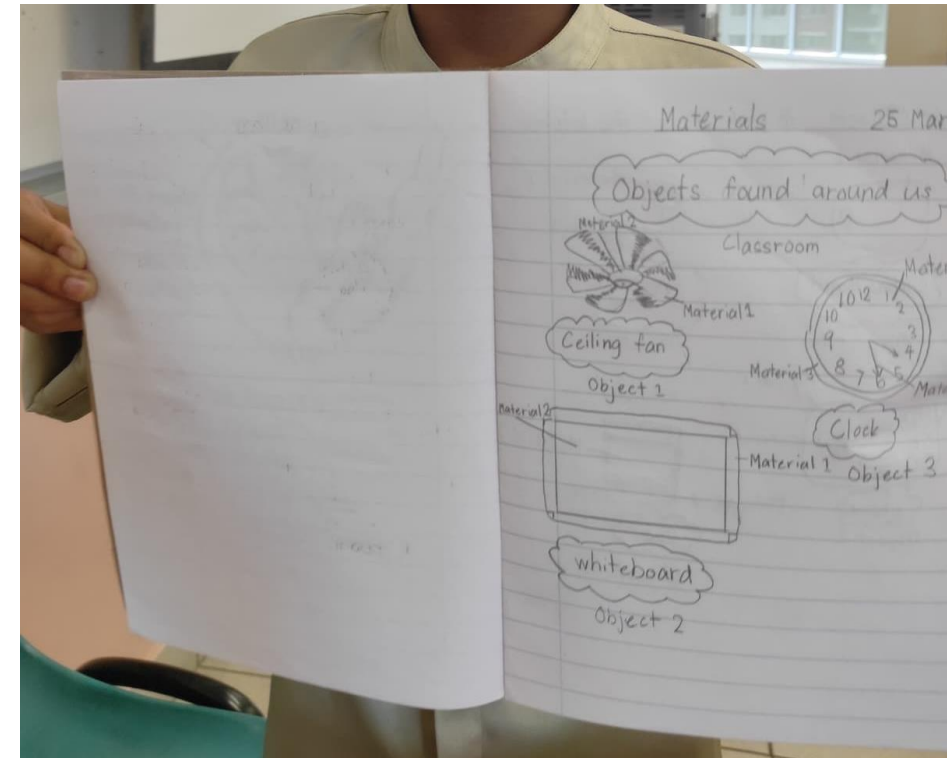 Materials 25 Mar
Objects found around us
Classroom
Material 2
Material 1
Ceiling fan
Object 1
Mater
10 12 1
2
10
3
9
4
8
7
6
5
Material 3
Mate
Clock
Object 3
Material 2
Material 1
whiteboard
Object 2